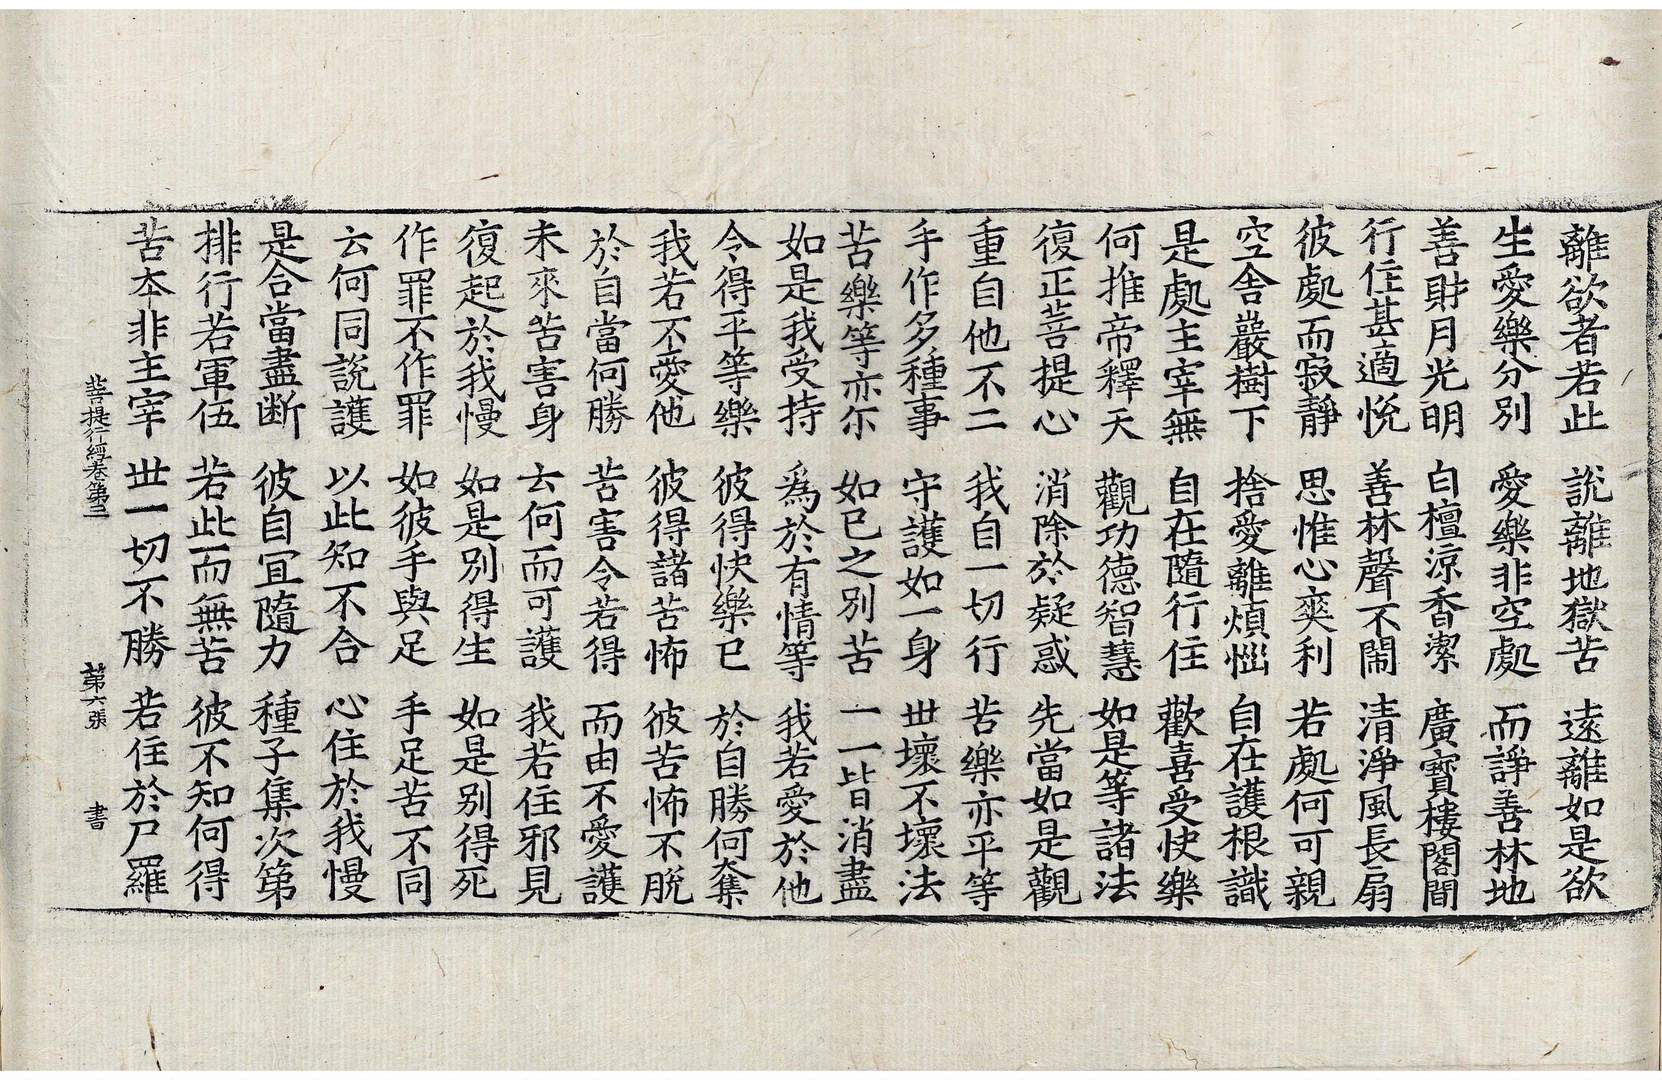 離欲者若此 說離地獄苦 遠離如是欲
生愛樂分別 愛樂非空處 而諍善林地
善財月光明 白檀涼香潔 廣寶樓閣間
行住甚適悅 善林聲不閙 清淨風長扇
彼處而寂靜 思惟心爽利 若處何可親
空舍巖樹下 捨愛離煩惱 自在護根識
是處主宰無 自在隨行住 歡喜受快樂
何推帝釋天 觀功德智慧 如是等諸法
復正菩提心 消除於疑惑 先當如是觀
重自他不二 我自一切行 苦樂亦平等
手作多種事 守護如一身 世壞不壞法
苦樂等亦尓 如已之別苦 一一皆消盡
如是我受持 爲於有情等 我若愛於他
令得平等樂 彼得快樂已 於自勝何奪
我若不愛他 彼得諸苦怖 彼苦怖不脫
於自當何勝 苦害令若得 而由不愛護
未來苦害身 云何而可護 我若住邪見
復起於我慢 如是別得生 如是別得死
作罪不作罪 如彼手與足 手足苦不同
云何同說護 以此知不合 心住於我慢
是合當盡断 彼自宜隨力 種子集次第
排行若軍伍 若此而無苦 彼不知何得
苦本非主宰 世一切不勝 若住於尸羅
菩提行經卷第三 第六張 書